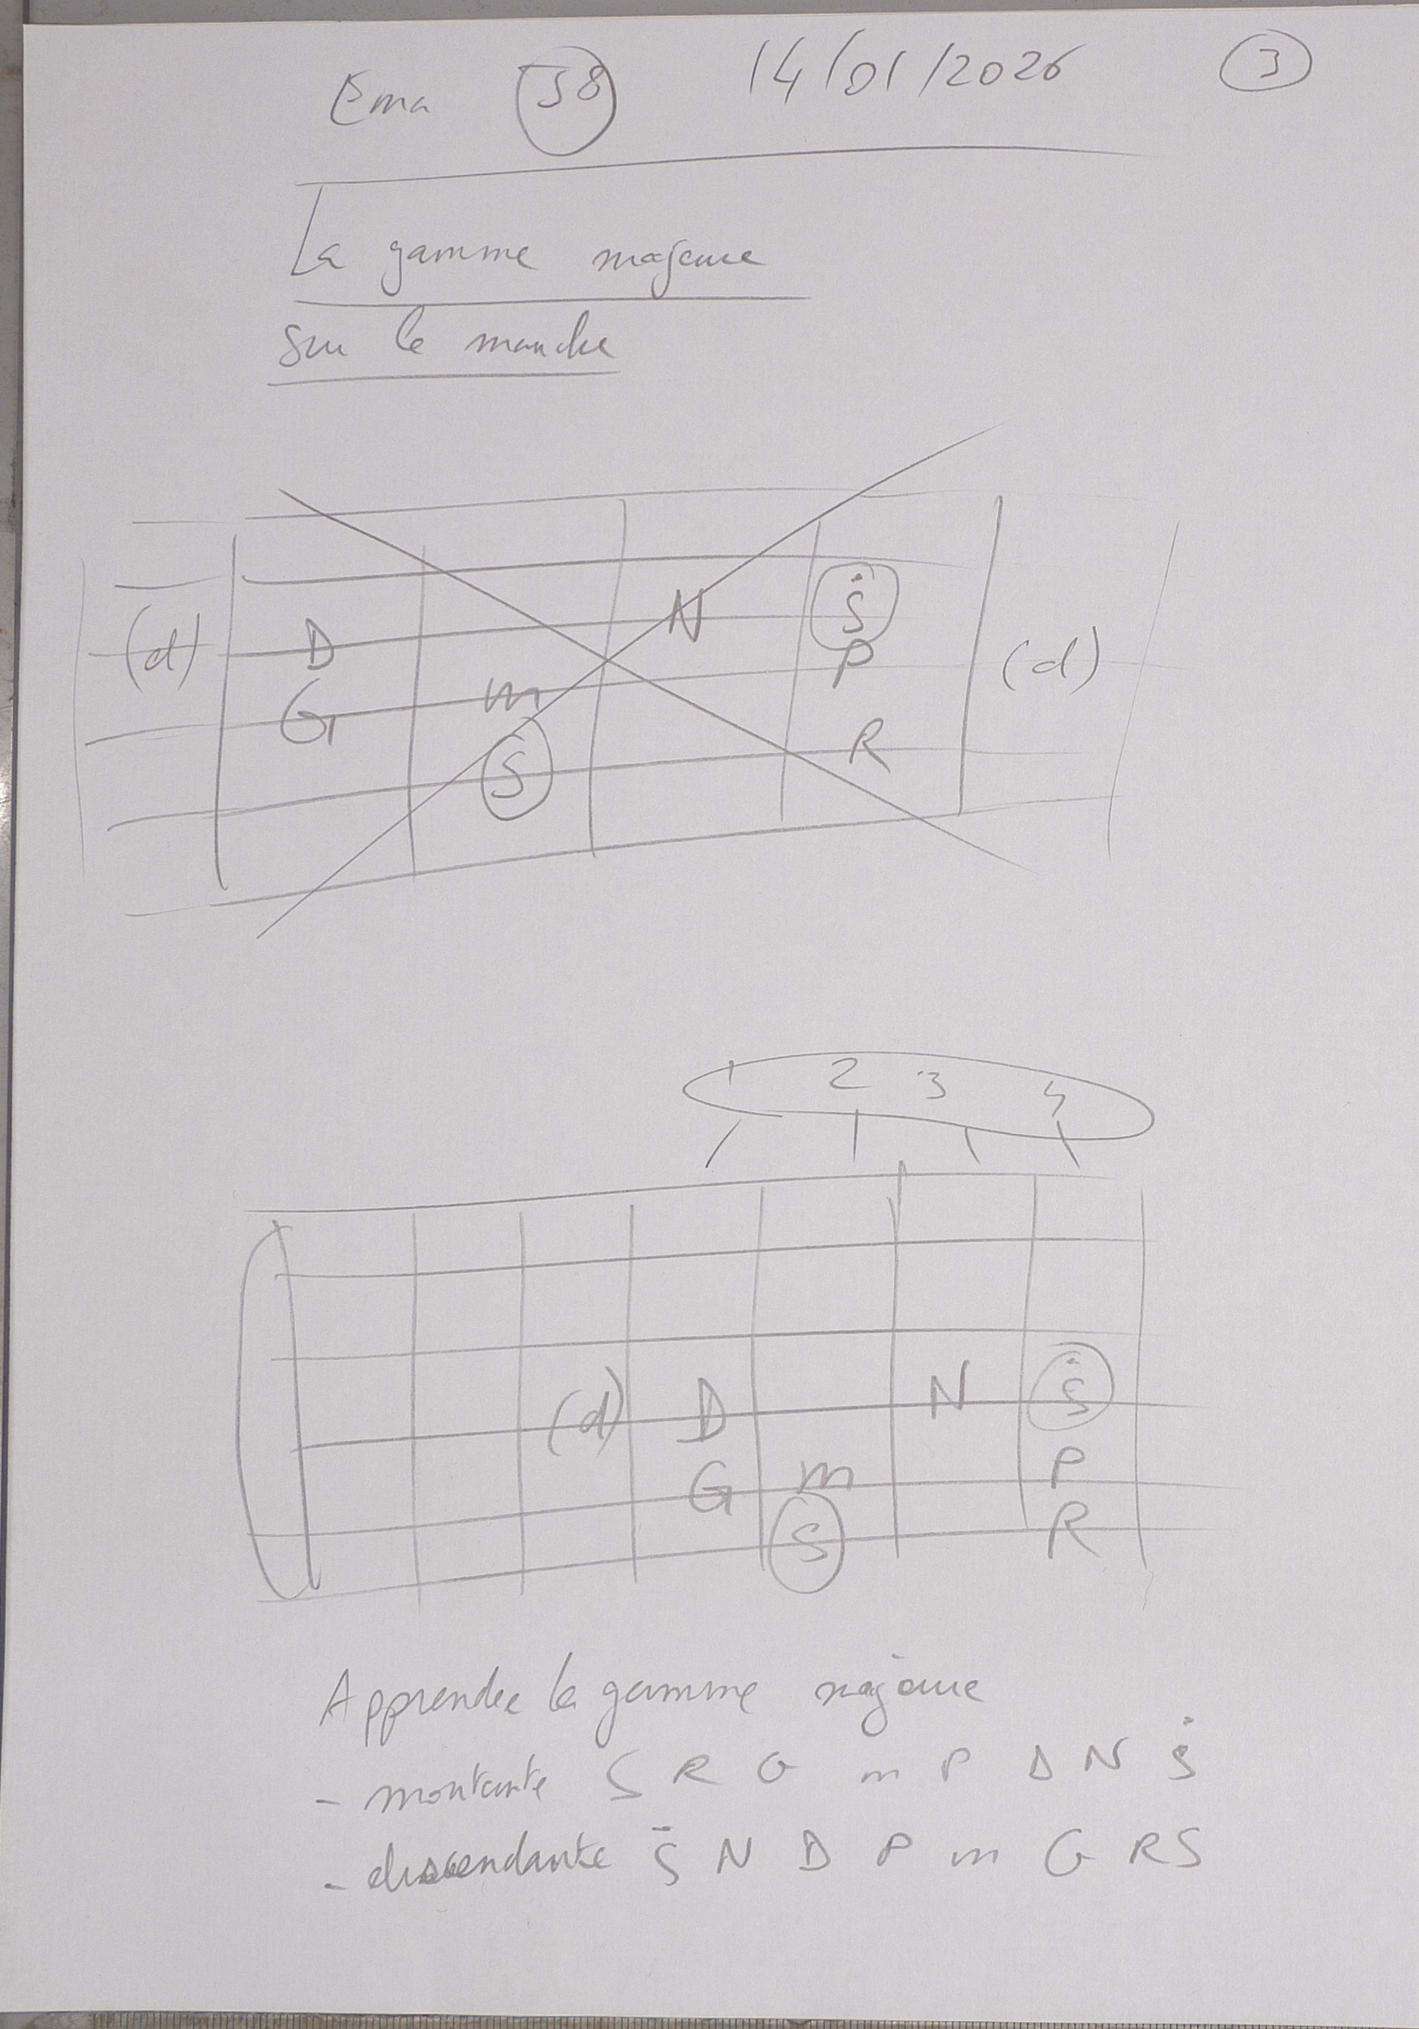 Ema S8 14/01/2026 3
La gamme majeure
sur le manche
(d) D N Ṡ
P (d)
G m
S R
1 2 3 4
(d) D N Ṡ
G m P
S R
Apprendre la gamme majeure
- montante S R G m P D N Ṡ
- descendante Ṡ N D P m G R S